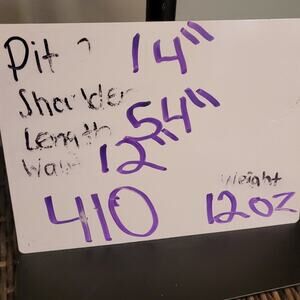 Pit 14"
Shoulder
Length 54"
Waist 12"
Weight
410 12oz